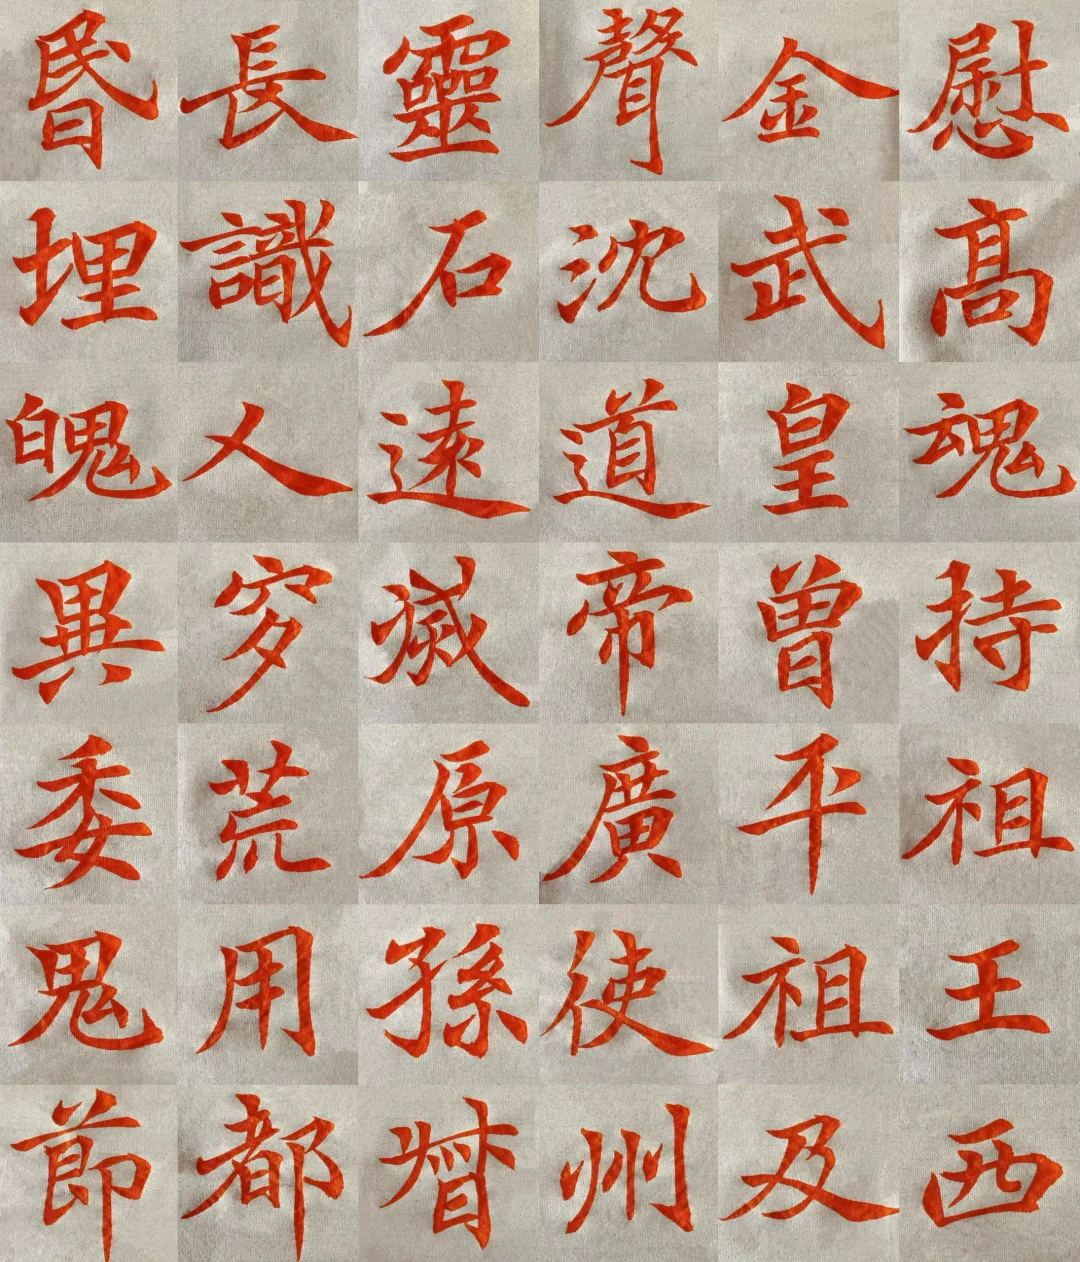 昬長靈聲金慰
埋識石沈武髙
魄人遠道皇魂
異穸滅帝曾持
委荒原廣平祖
鬼用孫使祖王
節都督州及西